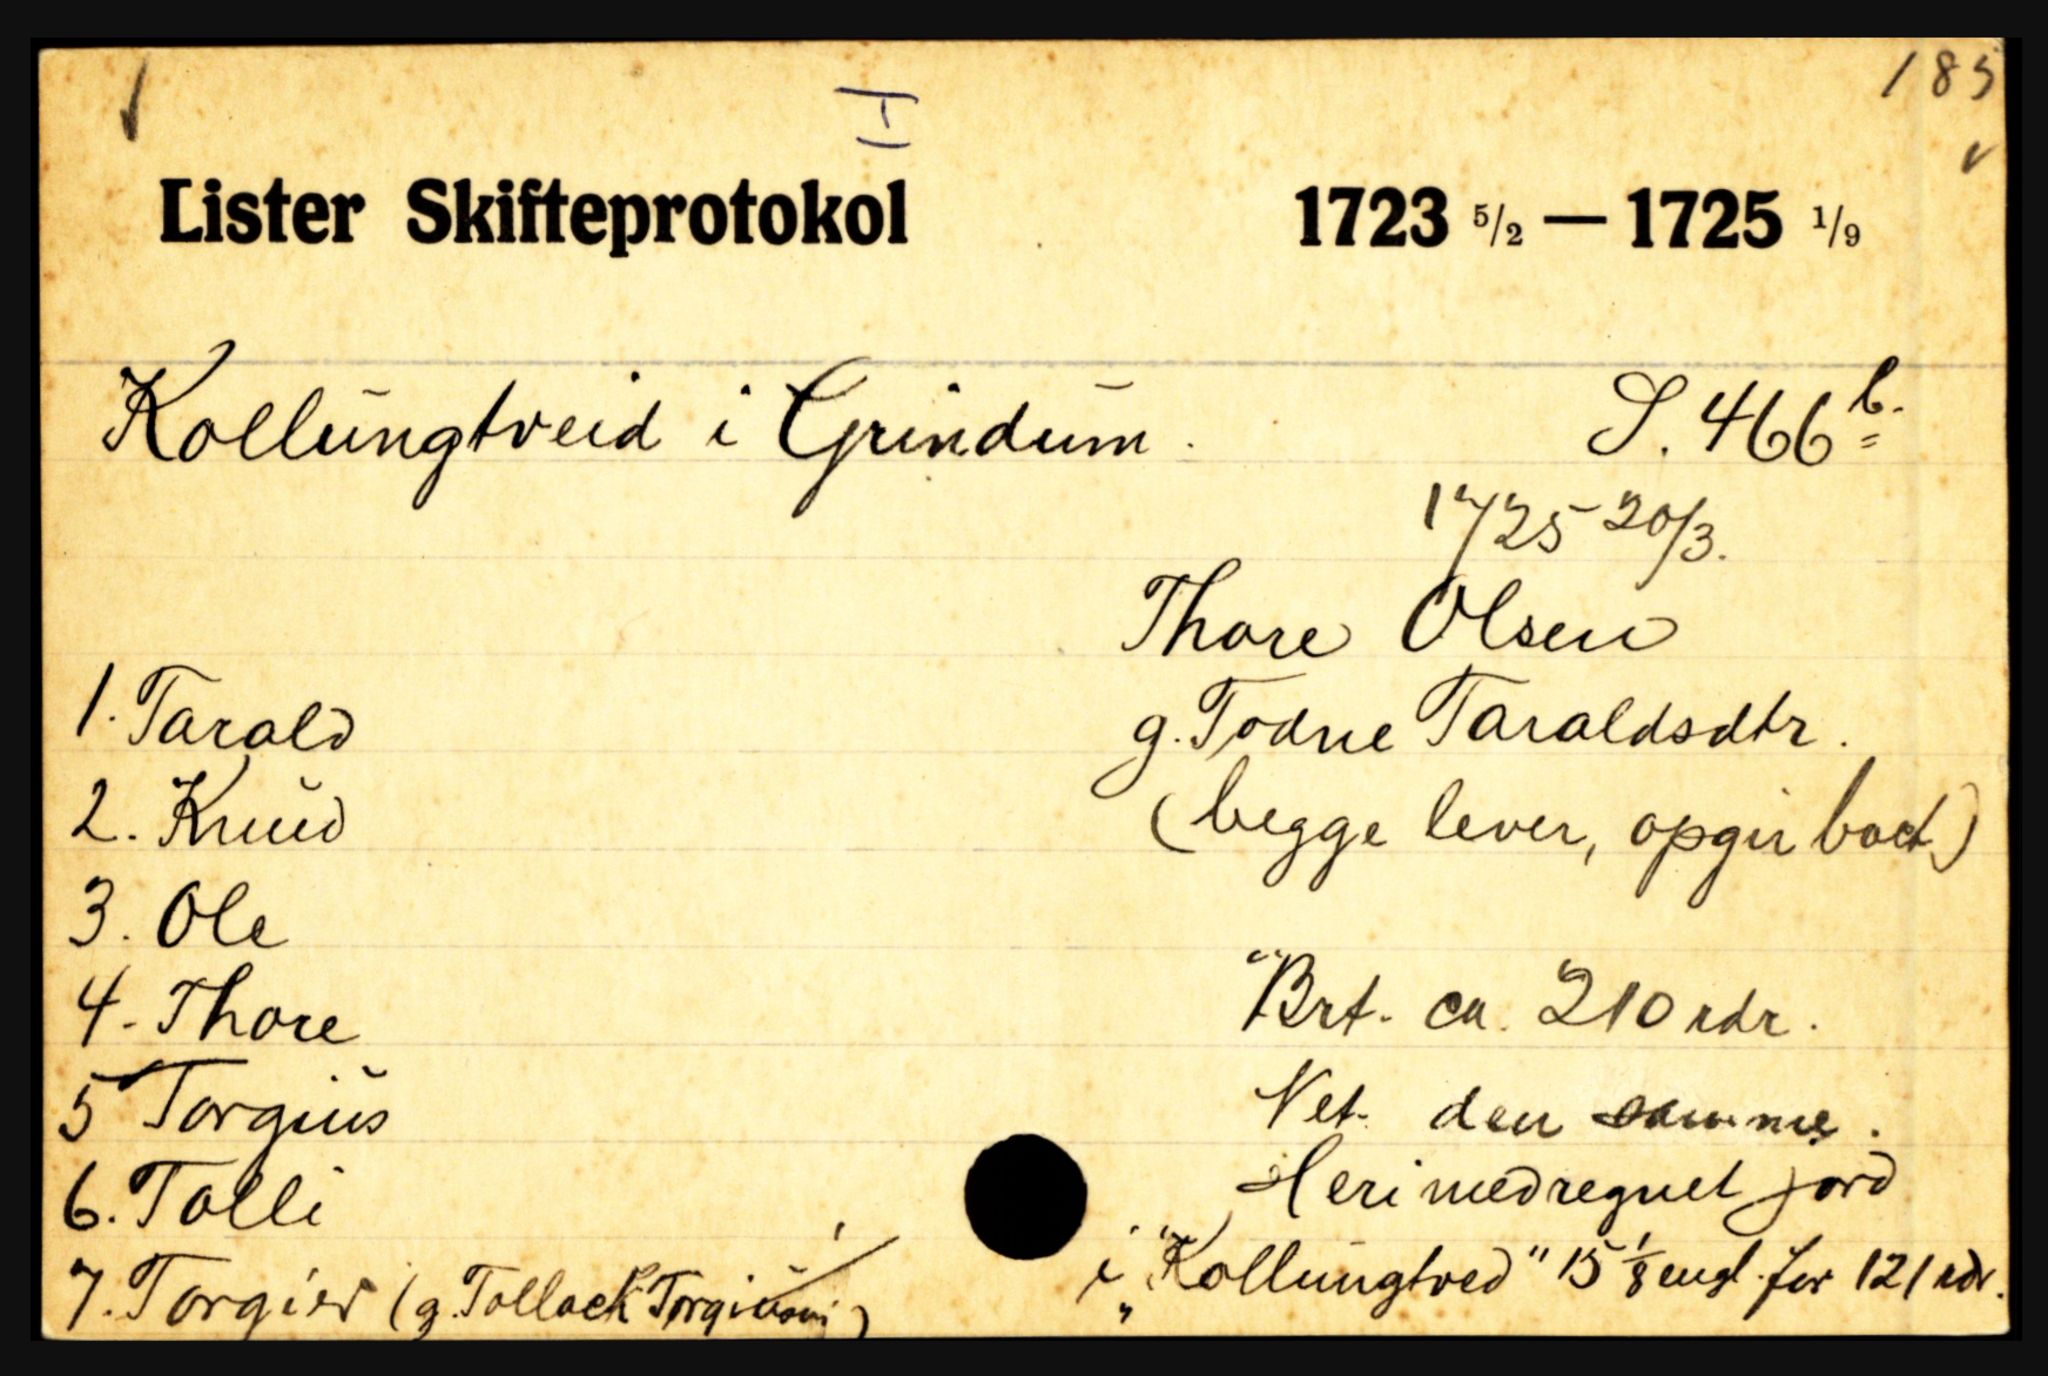 185
Lister Skifteprotokol 1723 5/2 — 1725 1/9
Kollungtveid i Grindum. S. 466 b.
1725 20/3.
Thore Olsen
g. Todne Taraldsdtr.
(begge lever, opgir boet)
1. Tarald
2. Knud
3. Ole
4. Thore
5 Torgius
6. Tolli
7. Torgier (g. Tollack Torgiusen)
Brt. ca. 210 rdr.
Net. den samme.
Heri medregnet jord
i "Kollungtved" 15 1/8 engl. for 121 rdr.